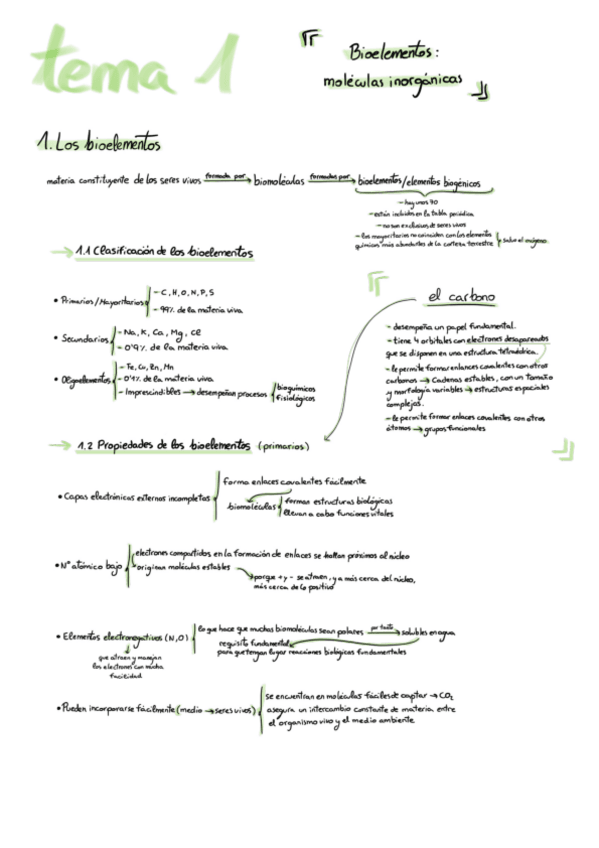 tema 1
Bioelementos:
moléculas inorgánicas
1. Los bioelementos
materia constituyente de los seres vivos formada por → biomoléculas formadas por → bioelementos/elementos biogénicos
- hay unos 90
- están incluidos en la tabla periódica
- no son exclusivos de seres vivos
- los mayoritarios no coinciden con los elementos
químicos más abundantes de la corteza terrestre
salvo el oxígeno
→ 1.1 Clasificación de los bioelementos
• Primarios/Mayoritarios
- C, H, O, N, P, S
- 99% de la materia viva
• Secundarios
- Na, K, Ca, Mg, Cl
- 0'9% de la materia viva
• Oligoelementos
- Fe, Cu, Zn, Mn
- 0'1% de la materia viva
- Imprescindibles → desempeñan procesos
bioquímicos
fisiológicos
el carbono
- desempeña un papel fundamental.
- tiene 4 orbitales con electrones desapareados
que se disponen en una estructura tetraédrica.
- le permite formar enlances covalentes con otros
carbonos → Cadenas estables, con un tamaño
y morfología variables → estructuras espaciales
complejas.
- le permite formar enlaces covalentes con otros
átomos → grupos funcionales
→ 1.2 Propiedades de los bioelementos (primarios)
• Capas electrónicas externas incompletas
forma enlaces covalentes fácilmente
biomoléculas
forman estructuras biológicas
llevan a cabo funciones vitales
• Nº atómico bajo
electrones compartidos en la formación de enlaces se hallan próximos al núcleo
originan moléculas estables
porque + y - se atraen, y a más cerca del núcleo,
más cerca de lo positivo
• Elementos electronegativos (N, O)
que atraen y manejan
los electrones con mucha
facilidad
lo que hace que muchas biomoléculas sean polares por tanto → solubles en agua
requisito fundamental
para que tengan lugar reacciones biológicas fundamentales
• Pueden incorporarse fácilmente (medio → seres vivos)
se encuentran en moléculas fáciles de captar → CO₂
asegura un intercambio constante de materia entre
el organismo vivo y el medio ambiente